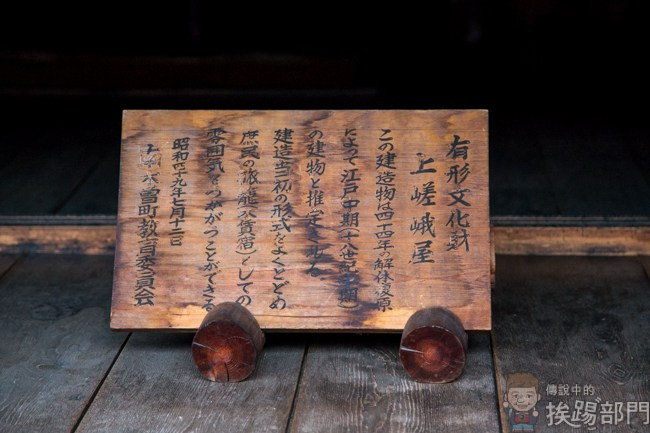 有形文化財
上嵯峨屋
この建造物は四十四年の解体復原
によって江戸中期(十八世紀
の建物と推定される
建造当初の形式をよくとどめ
庶民の旅籠(木賃宿)としての
雰囲気をうかがうことができる
昭和四十九年七月十二日
町教育委員会
傳說中的
挨踢部門